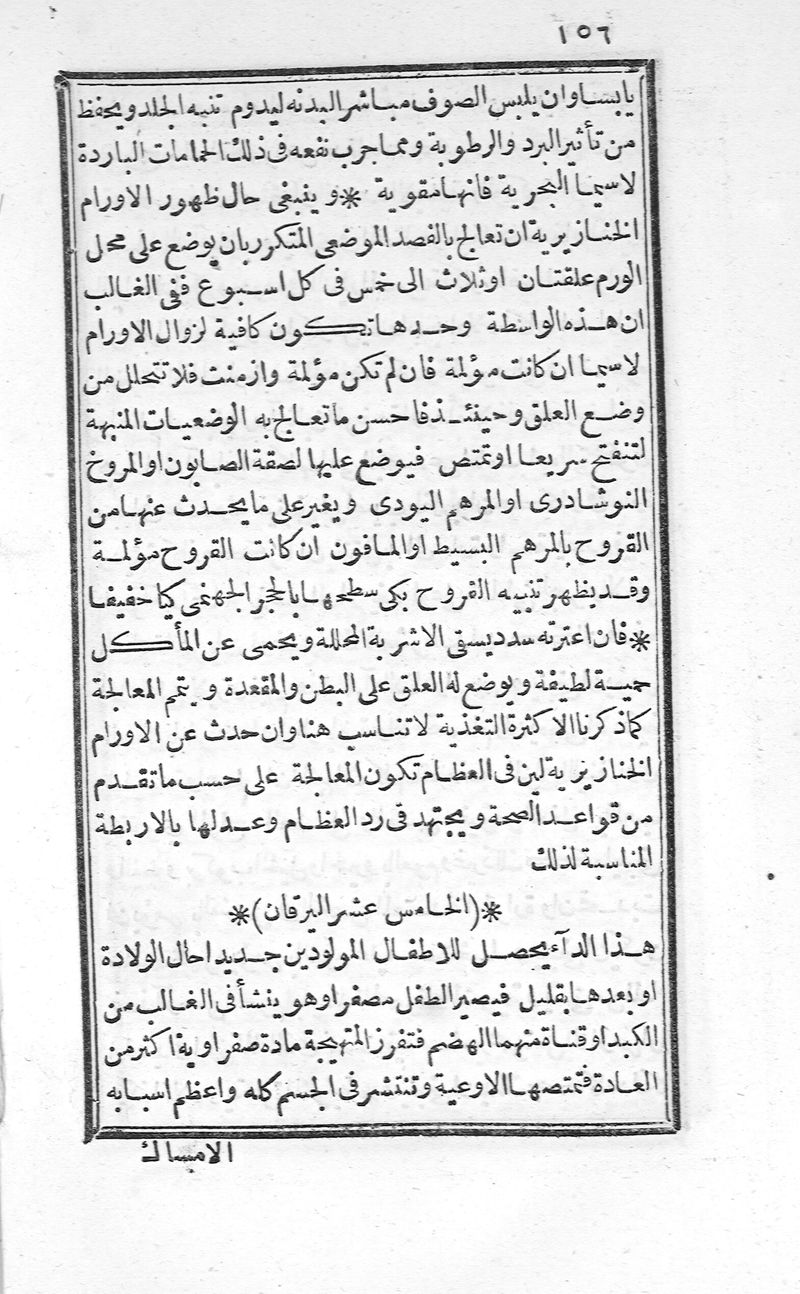 ١٥٦
يابسا وان يلبس الصوف مباشر البدنه ليدوم تنبه الجلد ويحفظ
من تأثير البرد والرطوبة ومما جرب نفعه فى ذلك الحمامات الباردة
لاسيما البحرية فانها مقوية * وينبغى حال ظهور الاورام
الخنازيرية ان تعالج بالفصد الموضعى المتكرر بان يوضع على محل
الورم علقتان اوثلاث الى خمس فى كل اسبوع ففى الغالب
ان هذه الواسطة وحدها تكون كافية لزوال الاورام
لاسيما ان كانت مؤلمة فان لم تكن مؤلمة وازمنت فلا تتحلل من
وضع العلق وحينئذ فاحسن ما تعالج به الوضعيات المنبهة
لتنفتح سريعا اوتمتص فيوضع عليها لصقة الصابون او المروخ
النوشادرى او المرهم اليودى ويغير على ما يحدث عنها من
القروح بالمرهم البسيط او المافون ان كانت القروح مؤلمة
وقد يظهر تنبيه القروح بكى سطحها بالحجر الجهنمى كيا خفيفا
* فان اعترته سدد يسقى الاشربة المحللة ويحمى عن المأكل
حمية لطيفة ويوضع له العلق على البطن والمقعدة ويتمم المعالجة
كما ذكرنا الا كثرة التغذية لاتناسب هنا وان حدث عن الاورام
الخنازيرية لين فى العظام تكون المعالجة على حسب ما تقدم
من قواعد الصحة ويجتهد فى رد العظام وعدلها بالاربطة
المناسبة لذلك
* (الخامس عشر اليرقان) *
هذا الدآء يحصل للاطفال المولودين جديدا حال الولادة
او بعدها بقليل فيصير الطفل مصفرا وهو ينشأ فى الغالب من
الكبد او قناة منهما الهضم فتفرز المتهيجة مادة صفراوية اكثر من
العادة فتمتصها الاوعية وتنتشر فى الجسم كله واعظم اسبابه
الامساك